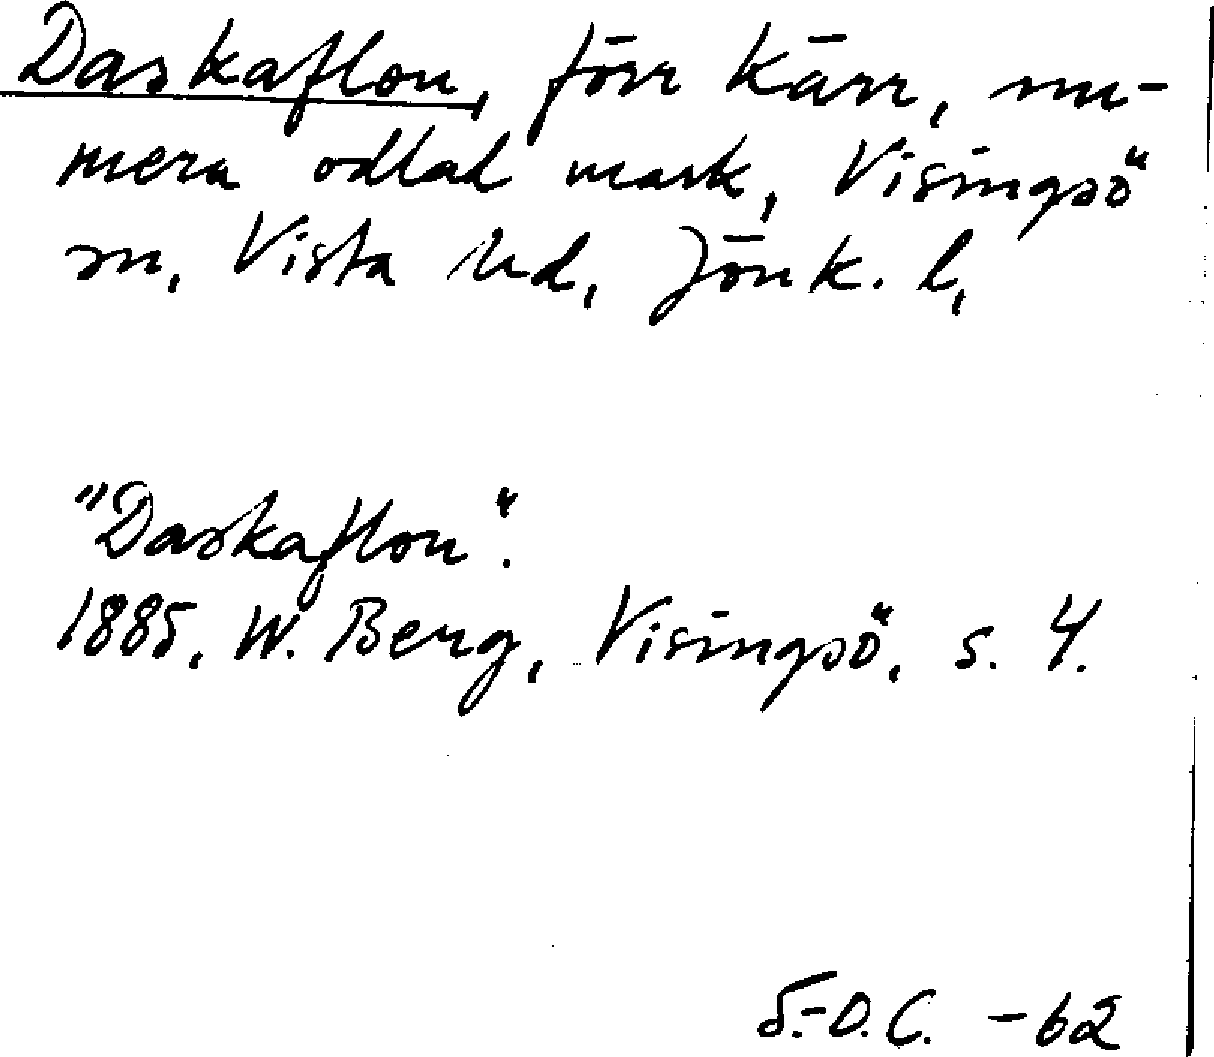 Daskaflon, förr kärr, nu-
mera odlad mark, Visingsö
sn, Vista hd, Jönk. l,
"Daskaflon".
1885. W. Berg, Visingsö, s. 4.
S.-O.C. -62